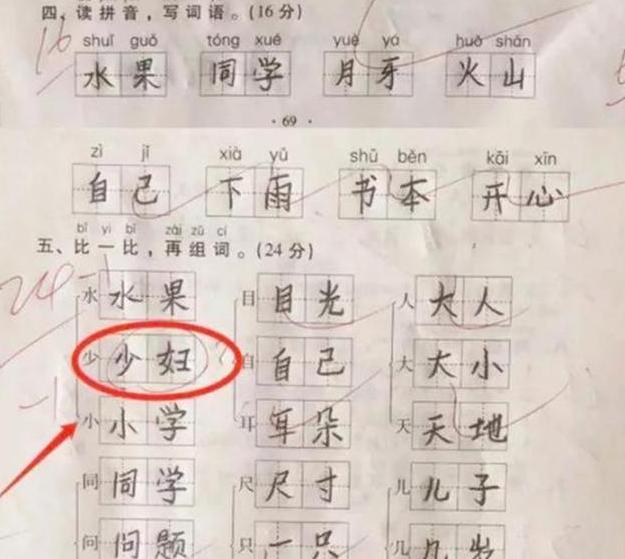 四、读拼音，写词语。(16分)
16
shuǐ guǒ tóng xué yuè yá huǒ shān
水果 同学 月牙 火山
·69·
zì jǐ xià yǔ shū běn kāi xīn
自己 下雨 书本 开心
bǐ yi bǐ zài zǔ cí
五、比一比，再组词。(24分)
24-1
水 水果 目 目光 人 大人
少 少妇 自 自己 大 大小
-1
小 小学 耳 耳朵 天 天地
同 同学 尺 尺寸 儿 儿子
问 问题 只 一只 几 几岁